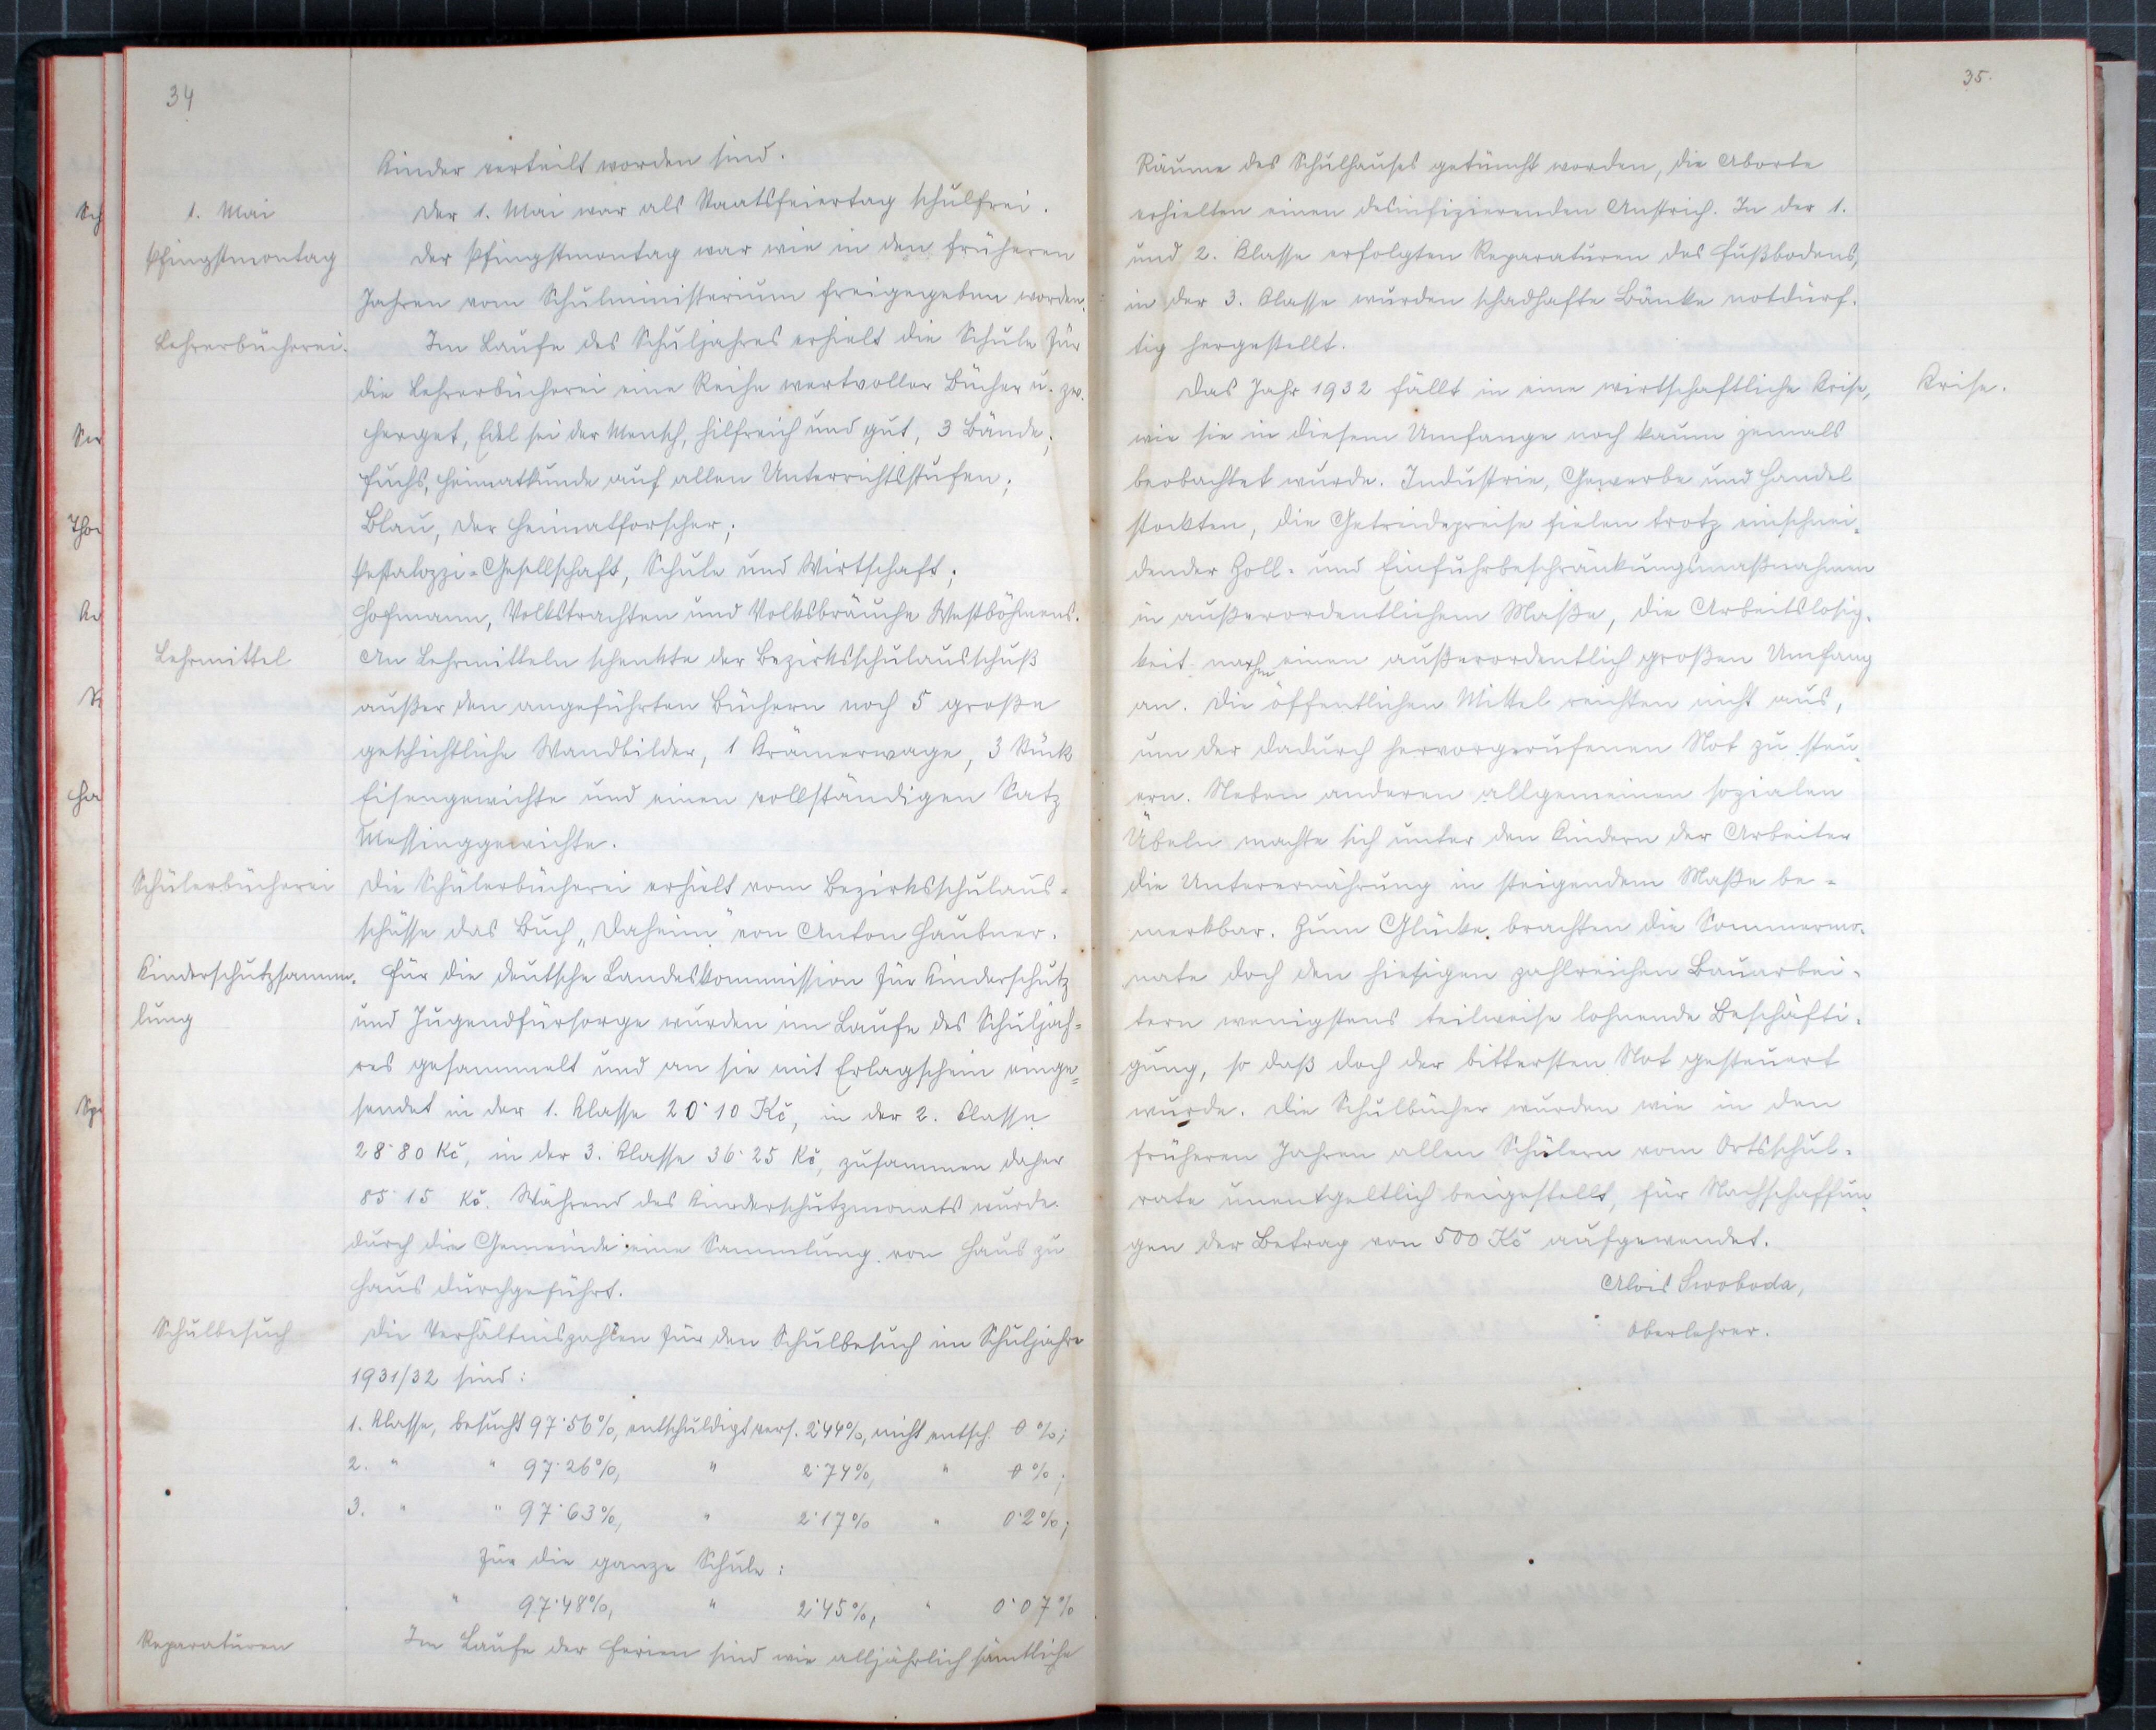 34
Kinder verteilt worden sind.
1. Mai
Der 1. Mai war als Staatsfeiertag schulfrei.
Pfingstmontag
Der Pfingstmontag war wie in den früheren
Jahren vom Schulministerium freigegeben worden.
Lehrerbücherei.
Im Laufe des Schuljahres erhielt die Schule für
die Lehrerbücherei eine Reihe wertvoller Bücher u. zw.
Herget, Edel sei der Mensch, hilfreich und gut, 3 Bände;
Fuchs, Heimatkunde auf allen Unterrichtsstufen;
Blau, Der Heimatforscher;
Pestalozzi-Gesellschaft, Schule und Wirtschaft;
Hofmann, Volkstrachten und Volksbräuche Westböhmens.
Lehrmittel
An Lehrmitteln schenkte der Bezirksschulausschuß
außer den angeführten Büchern noch 5 große
geschichtliche Wandbilder, 1 Krämerwage, 3 Stück
Eisengewichte und einen vollständigen Satz
Messinggewichte.
Schülerbücherei
Die Schülerbücherei erhielt vom Bezirksschulaus-
schusse das Buch „Daheim" von Anton Haubner.
Kinderschutzsamm-
lung
Für die deutsche Landeskommission für Kinderschutz
und Jugendfürsorge wurden im Laufe des Schuljah-
res gesammelt und an sie mit Erlagschein einge-
sendet in der 1. Klasse 20·10 Kč, in der 2. Klasse
28·80 Kč, in der 3. Klasse 36·25 Kč, zusammen daher
85·15 Kč. Während des Kinderschutzmonats wurde
durch die Gemeinde eine Sammlung von Haus zu
Haus durchgeführt.
Schulbesuch
Die Verhältniszahlen für den Schulbesuch im Schuljahre
1931/32 sind:
1. Klasse, besucht 97·56%, entschuldigt vers. 2·44%, nicht entsch. 0%;
2. " " 97·26%, " 2·74%, " 0%;
3. " " 97·63%, " 2·17% " 0·2%;
Für die ganze Schule:
" 97·48%, " 2·45%, " 0·07%
Reparaturen
Im Laufe der Ferien sind wie alljährlich sämtliche
35.
Räume des Schulhauses getüncht worden, die Aborte
erhielten einen desinfizierenden Anstrich. In der 1.
und 2. Klasse erfolgten Reparaturen des Fußbodens,
in der 3. Klasse wurden schadhafte Bänke notdürf-
tig hergestellt.
Krise.
Das Jahr 1932 fällt in eine wirtschaftliche Krise,
wie sie in diesem Umfange noch kaum jemals
beobachtet wurde. Industrie, Gewerbe und Handel
stockten, die Getreidepreise fielen trotz einschnei-
dender Zoll- und Einfuhrbeschränkungsmaßnahmen
in außerordentlichem Maße, die Arbeitslosig-
keit nahm einen außerordentlich großen Umfang
an. Die öffentlichen Mittel reichten nicht aus,
um der dadurch hervorgerufenen Not zu steu-
ern. Neben anderen allgemeinen sozialen
Übeln machte sich unter den Kindern der Arbeiter
die Unterernährung in steigendem Maße be-
merkbar. Zum Glücke brachten die Sommermo-
nate doch den hiesigen zahlreichen Bauarbei-
tern wenigstens teilweise lohnende Beschäfti-
gung, so daß doch der bittersten Not gesteuert
wurde. Die Schulbücher wurden wie in den
früheren Jahren allen Schülern vom Ortsschul-
rate unentgeltlich beigestellt, für Nachschaffun-
gen der Betrag von 500 Kč aufgewendet.
Alois Swoboda,
Oberlehrer.